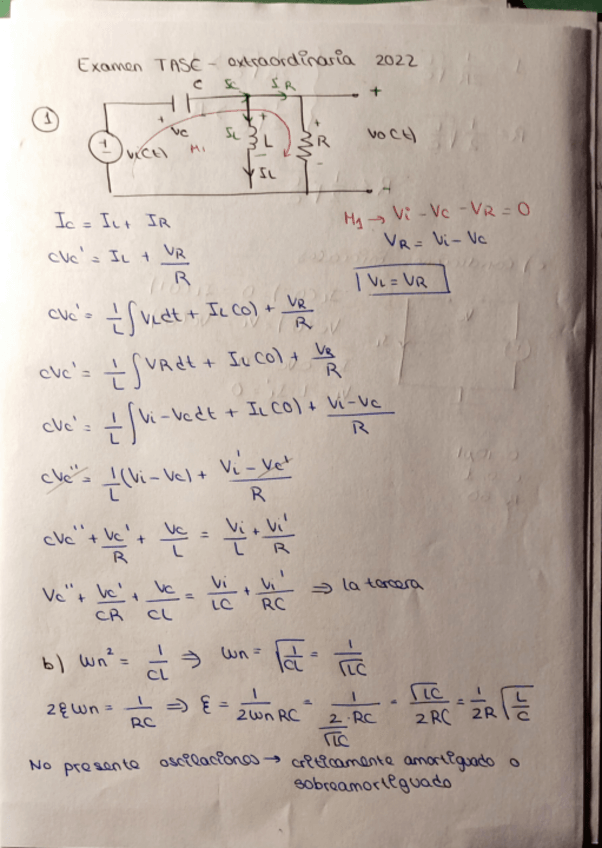 Examen TASC - extraordinaria 2022
1
C Ic IR +
+ Vc M1 IL + L - + R - vo(t)
+ vi(t) IL
Ic = IL + IR
H1 → Vi - Vc - VR = 0
CVc' = IL + VR/R
VR = Vi - Vc
VL = VR
CVc' = 1/L ∫VLdt + IL(0) + VR/R
CVc' = 1/L ∫VRdt + IL(0) + VR/R
CVc' = 1/L ∫Vi-Vcdt + IL(0) + Vi-Vc/R
CVc'' = 1/L (Vi-Vc) + Vi'-Vc'/R
CVc'' + Vc'/R + Vc/L = Vi/L + Vi'/R
Vc'' + Vc'/CR + Vc/CL = Vi/LC + Vi'/RC ⇒ la tercera
b) Wn² = 1/CL ⇒ Wn = √1/CL = 1/√LC
2ξWn = 1/RC ⇒ ξ = 1/2WnRC = 1/(2/√LC · RC) = √LC/2RC = 1/2R √L/C
No presente oscilaciones → críticamente amortiguado o
sobreamortiguado